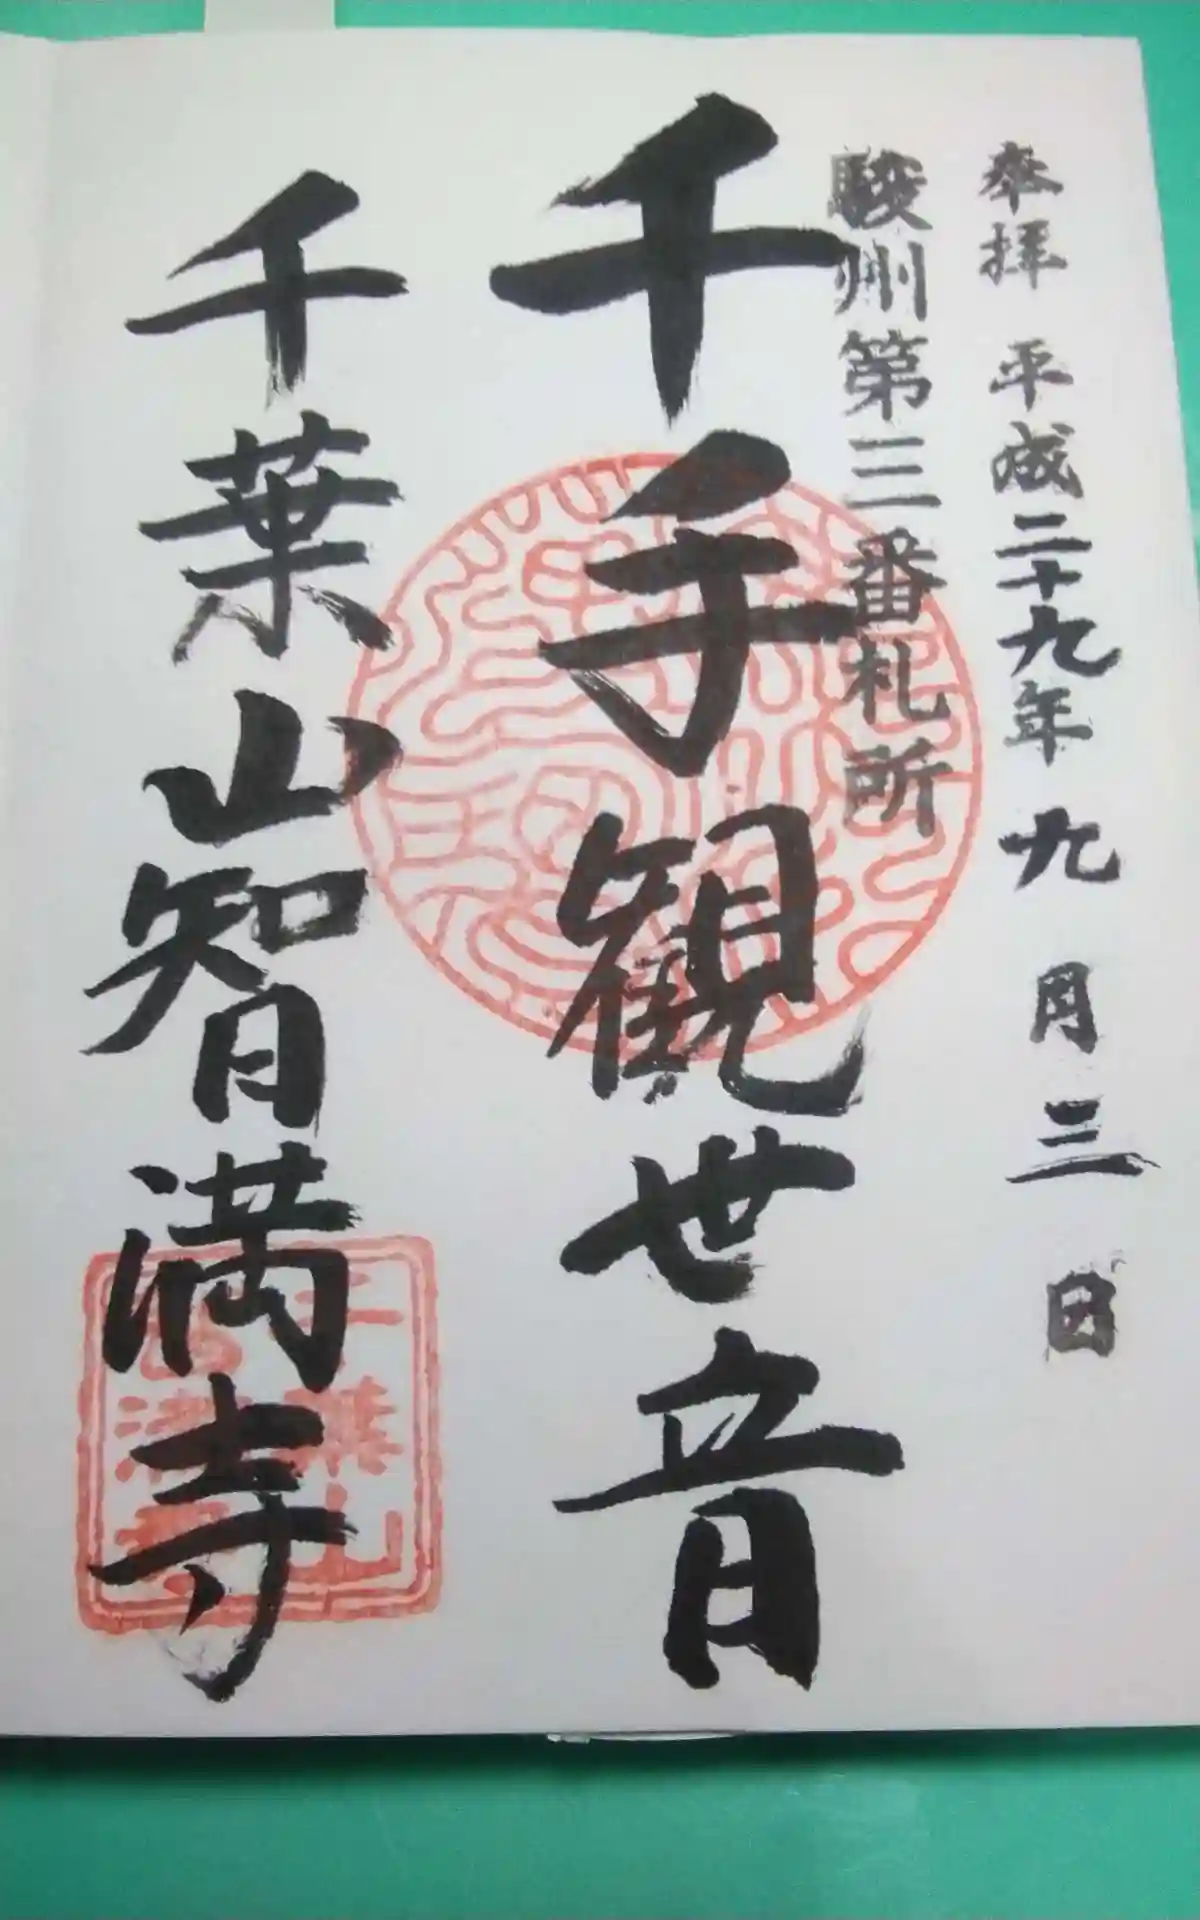 奉拝 平成二十九年 九月三日
駿州第三番札所
千手観世音
千葉山智満寺
千葉山
智満寺